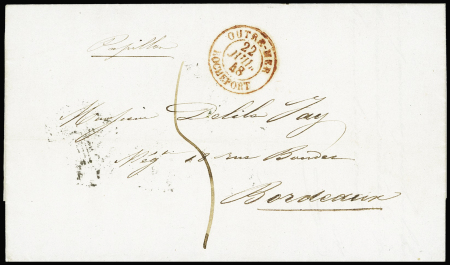 Papillon
OUTRE-MER
22
JUIL.
48
ROCHEFORT
Monsieur Delile Jay
Négt 18 rue Bourdes
Bordeaux
5